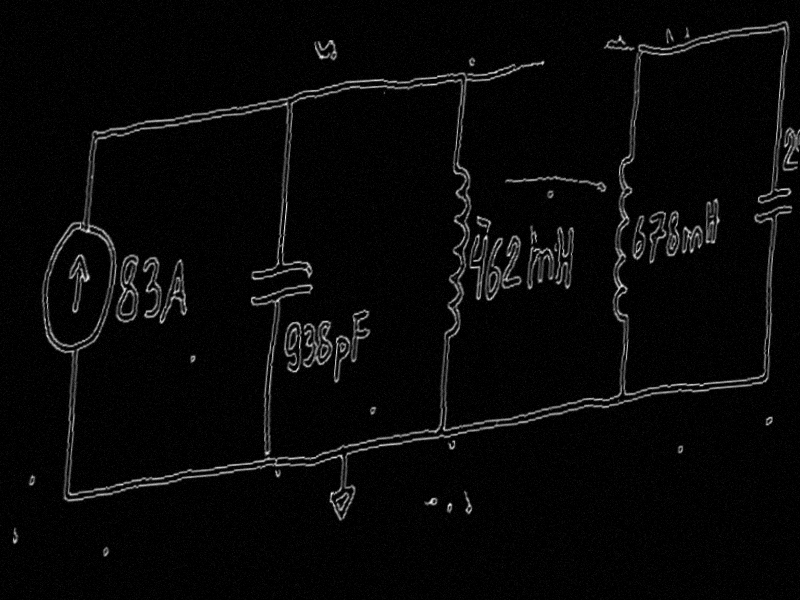 83A
938pF
462mH
678mH